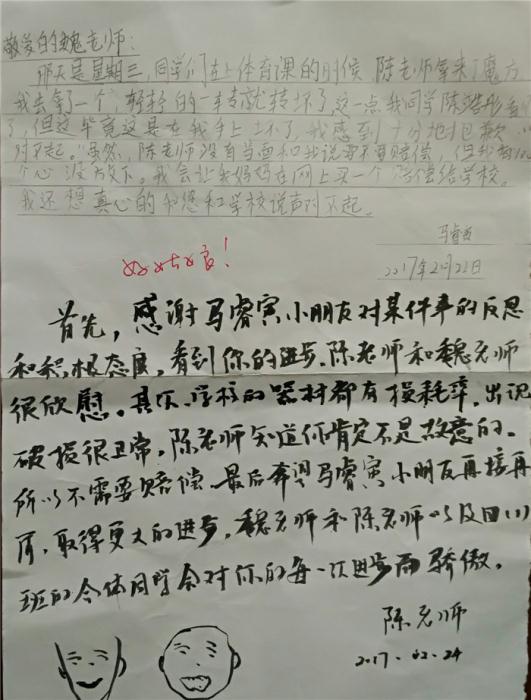 敬爱的魏老师：
那天是星期三，同学们在上体育课的时候 陈老师拿来了魔方
我去拿了一个，轻轻的一转就转坏了，这一点我同学陈浩彤
了，但这毕竟这是在我手上坏了，我感到十分地抱歉
对不起。虽然，陈老师没有当面和我说要不要赔偿，但我
个心没放下。我会让我妈妈在网上买一个 赔偿给学校。
我还想真心的和您和学校说声对不起。
马睿寅
2017年2月22日
好姑娘！
首先，感谢马睿寅小朋友对某件事的反思
和积极态度，看到你的进步，陈老师和魏老师
很欣慰。其次，学校的器材都有损耗率，出现
破损很正常，陈老师知道你肯定不是故意的。
所以不需要赔偿。最后希望马睿寅小朋友再接再
厉，取得更大的进步，魏老师和陈老师以及四(1)
班的全体同学会对你的每一次进步而骄傲。
陈老师
2017.02.24